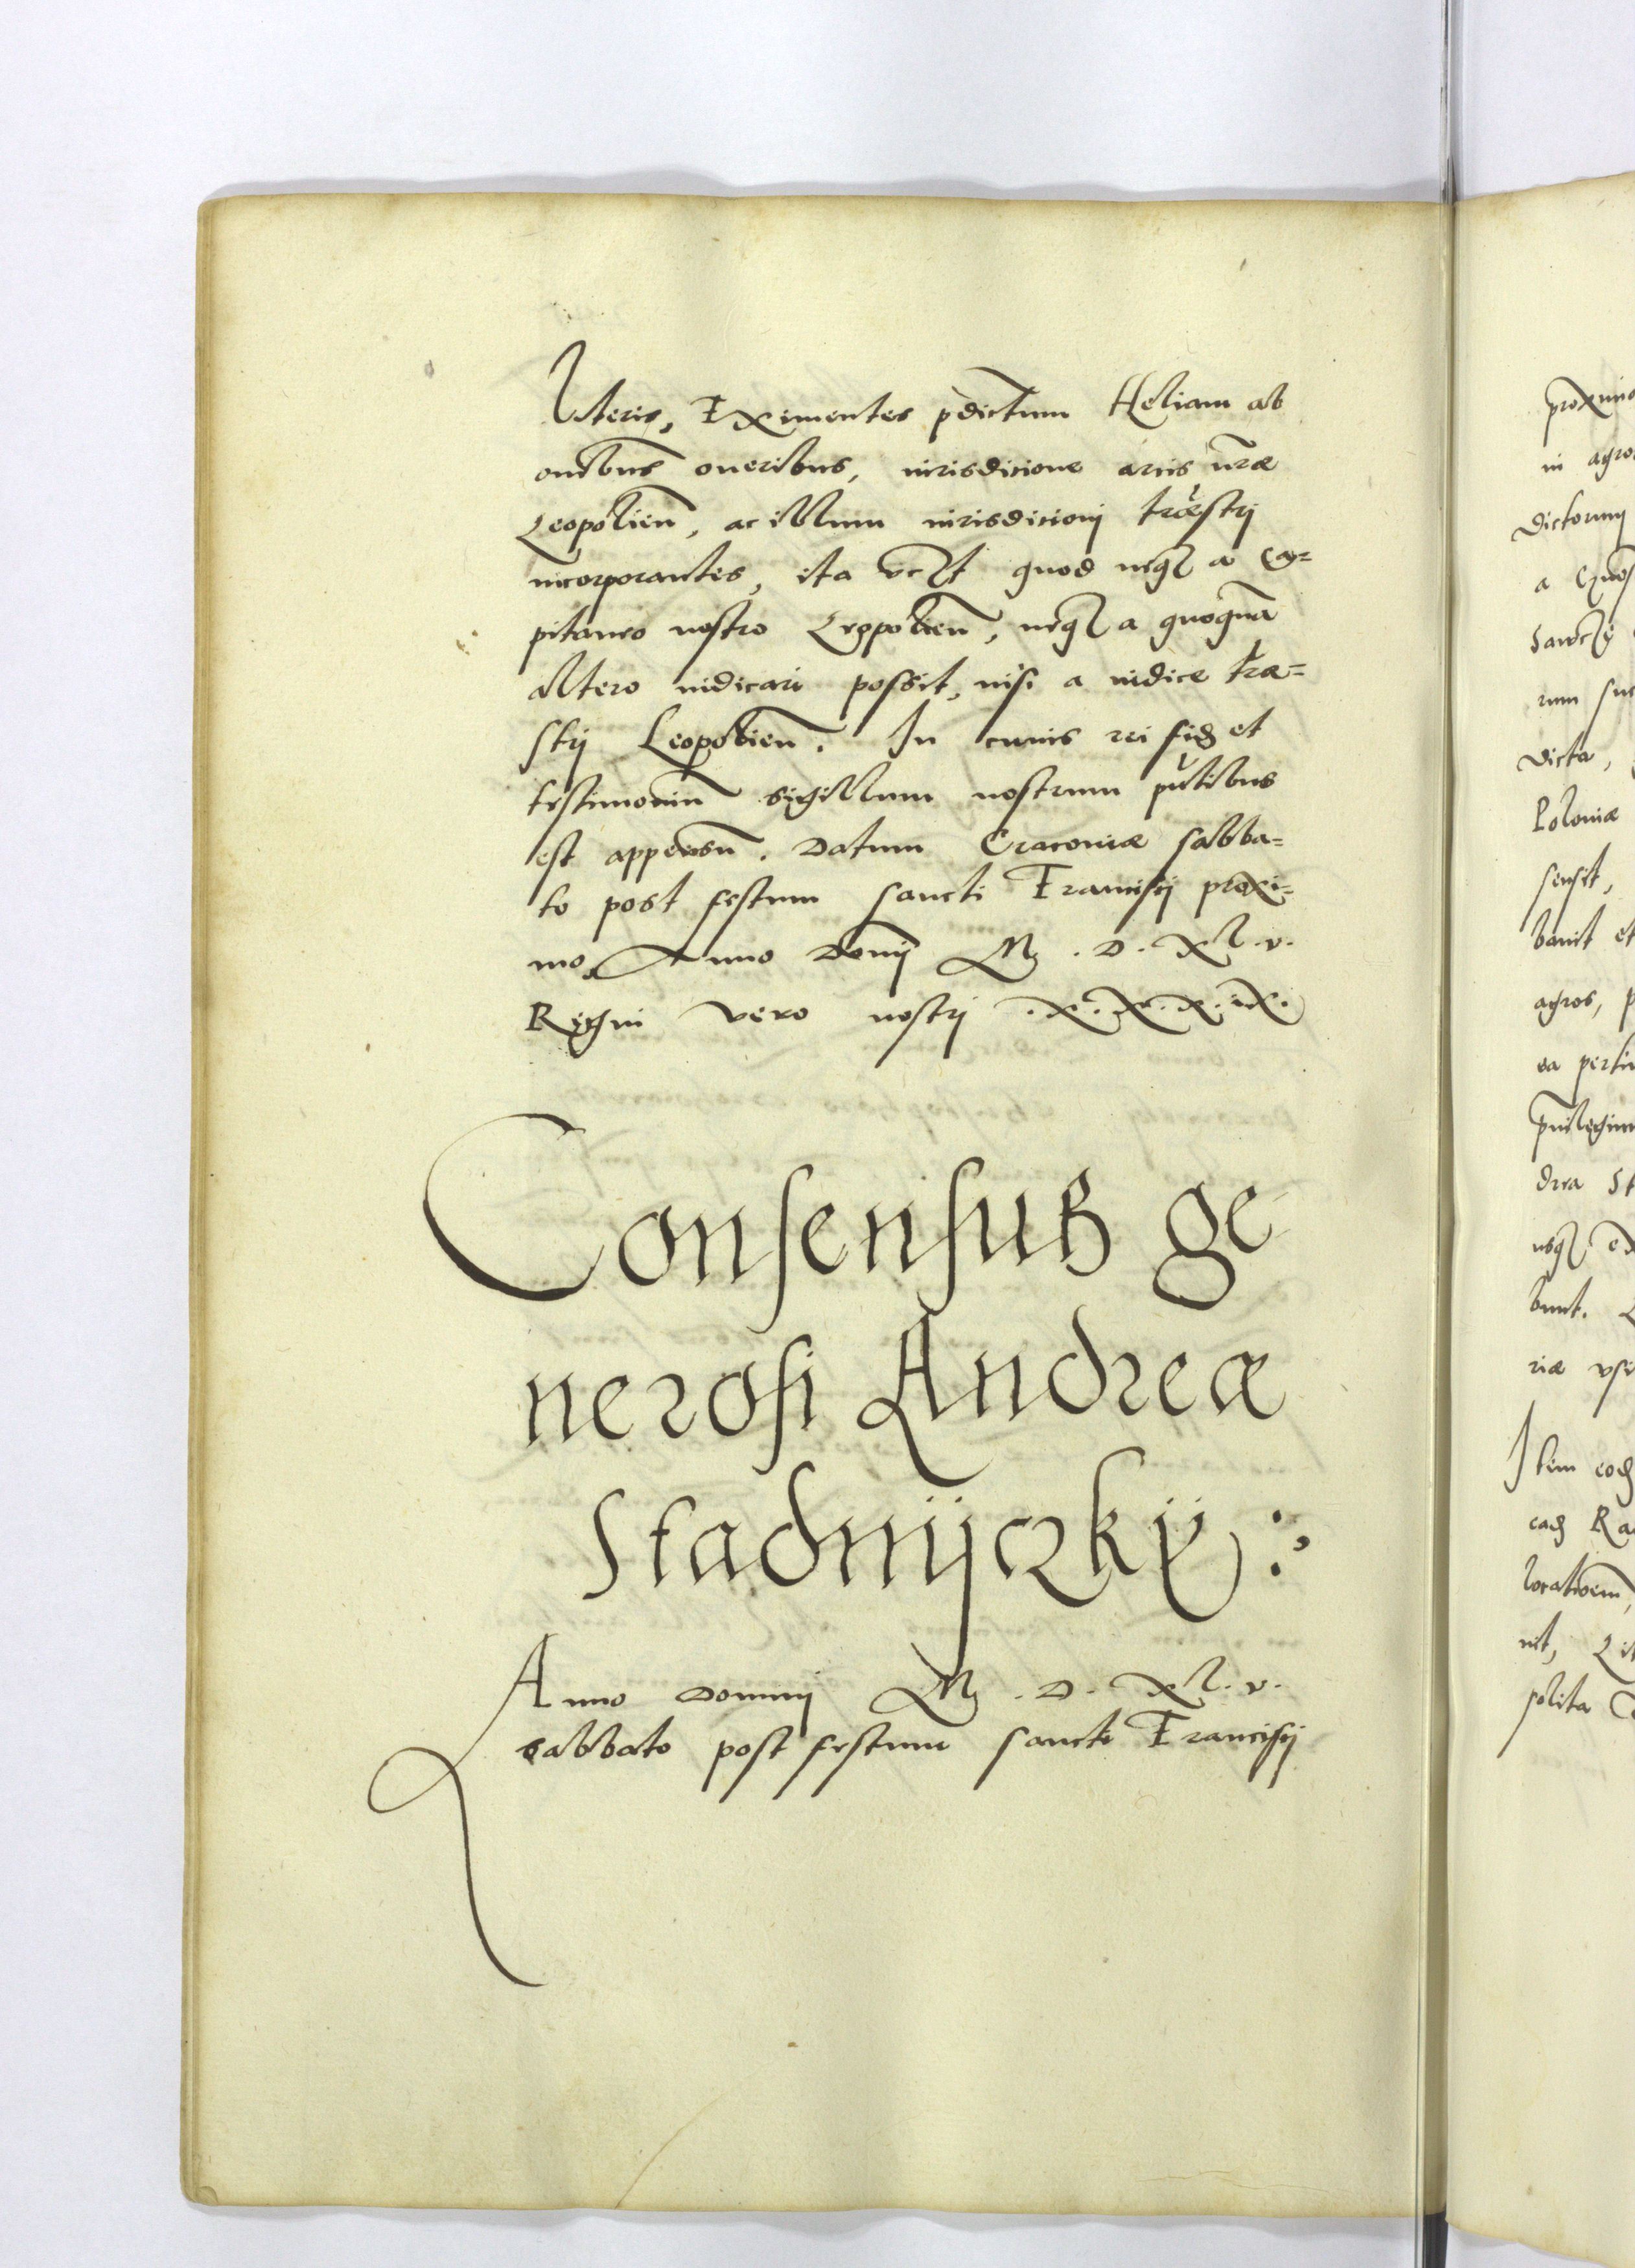 Literis, Eximentes p̄dictum Heliam ab
om̄ibus oneribus, iurisdicione arcis nr̄æ
Leopolien̄, ac illum iurisdicionj træstrj
incorporantes, ita quod neqȝ a Ca=
pitaneo nostro Leopolien̄, neqȝ a quoqua̅
altero iudicari possit, nisi a iudice træ=
strj Leopolien̄. In cuius rei fidȝ et
testimoniu̅ sigillum nostrum pn̄tibus
est appensu̅. Datum Cracoviæ sabba=
to post festum sancti Francisij proxi=
mo. Anno Domj M. D. Xl. v.
Regni vero nostrj .X.X.X.iX.
Consensus ge
nerosi Andreæ
Stadnijczkÿ:
Anno Dominj M. D. Xl. v.
Sabbato post festum sancti Francisij
proximo
in agro
dictorum
a
Sanctȝ
rum
dicta,
Poloniæ
sensit,
bavit et
agros, p
ea perti
privilegium
drea St
usqȝ
bunt.
riæ
Item eodȝ
eadȝ Ra
locatioem,
nit,
solita